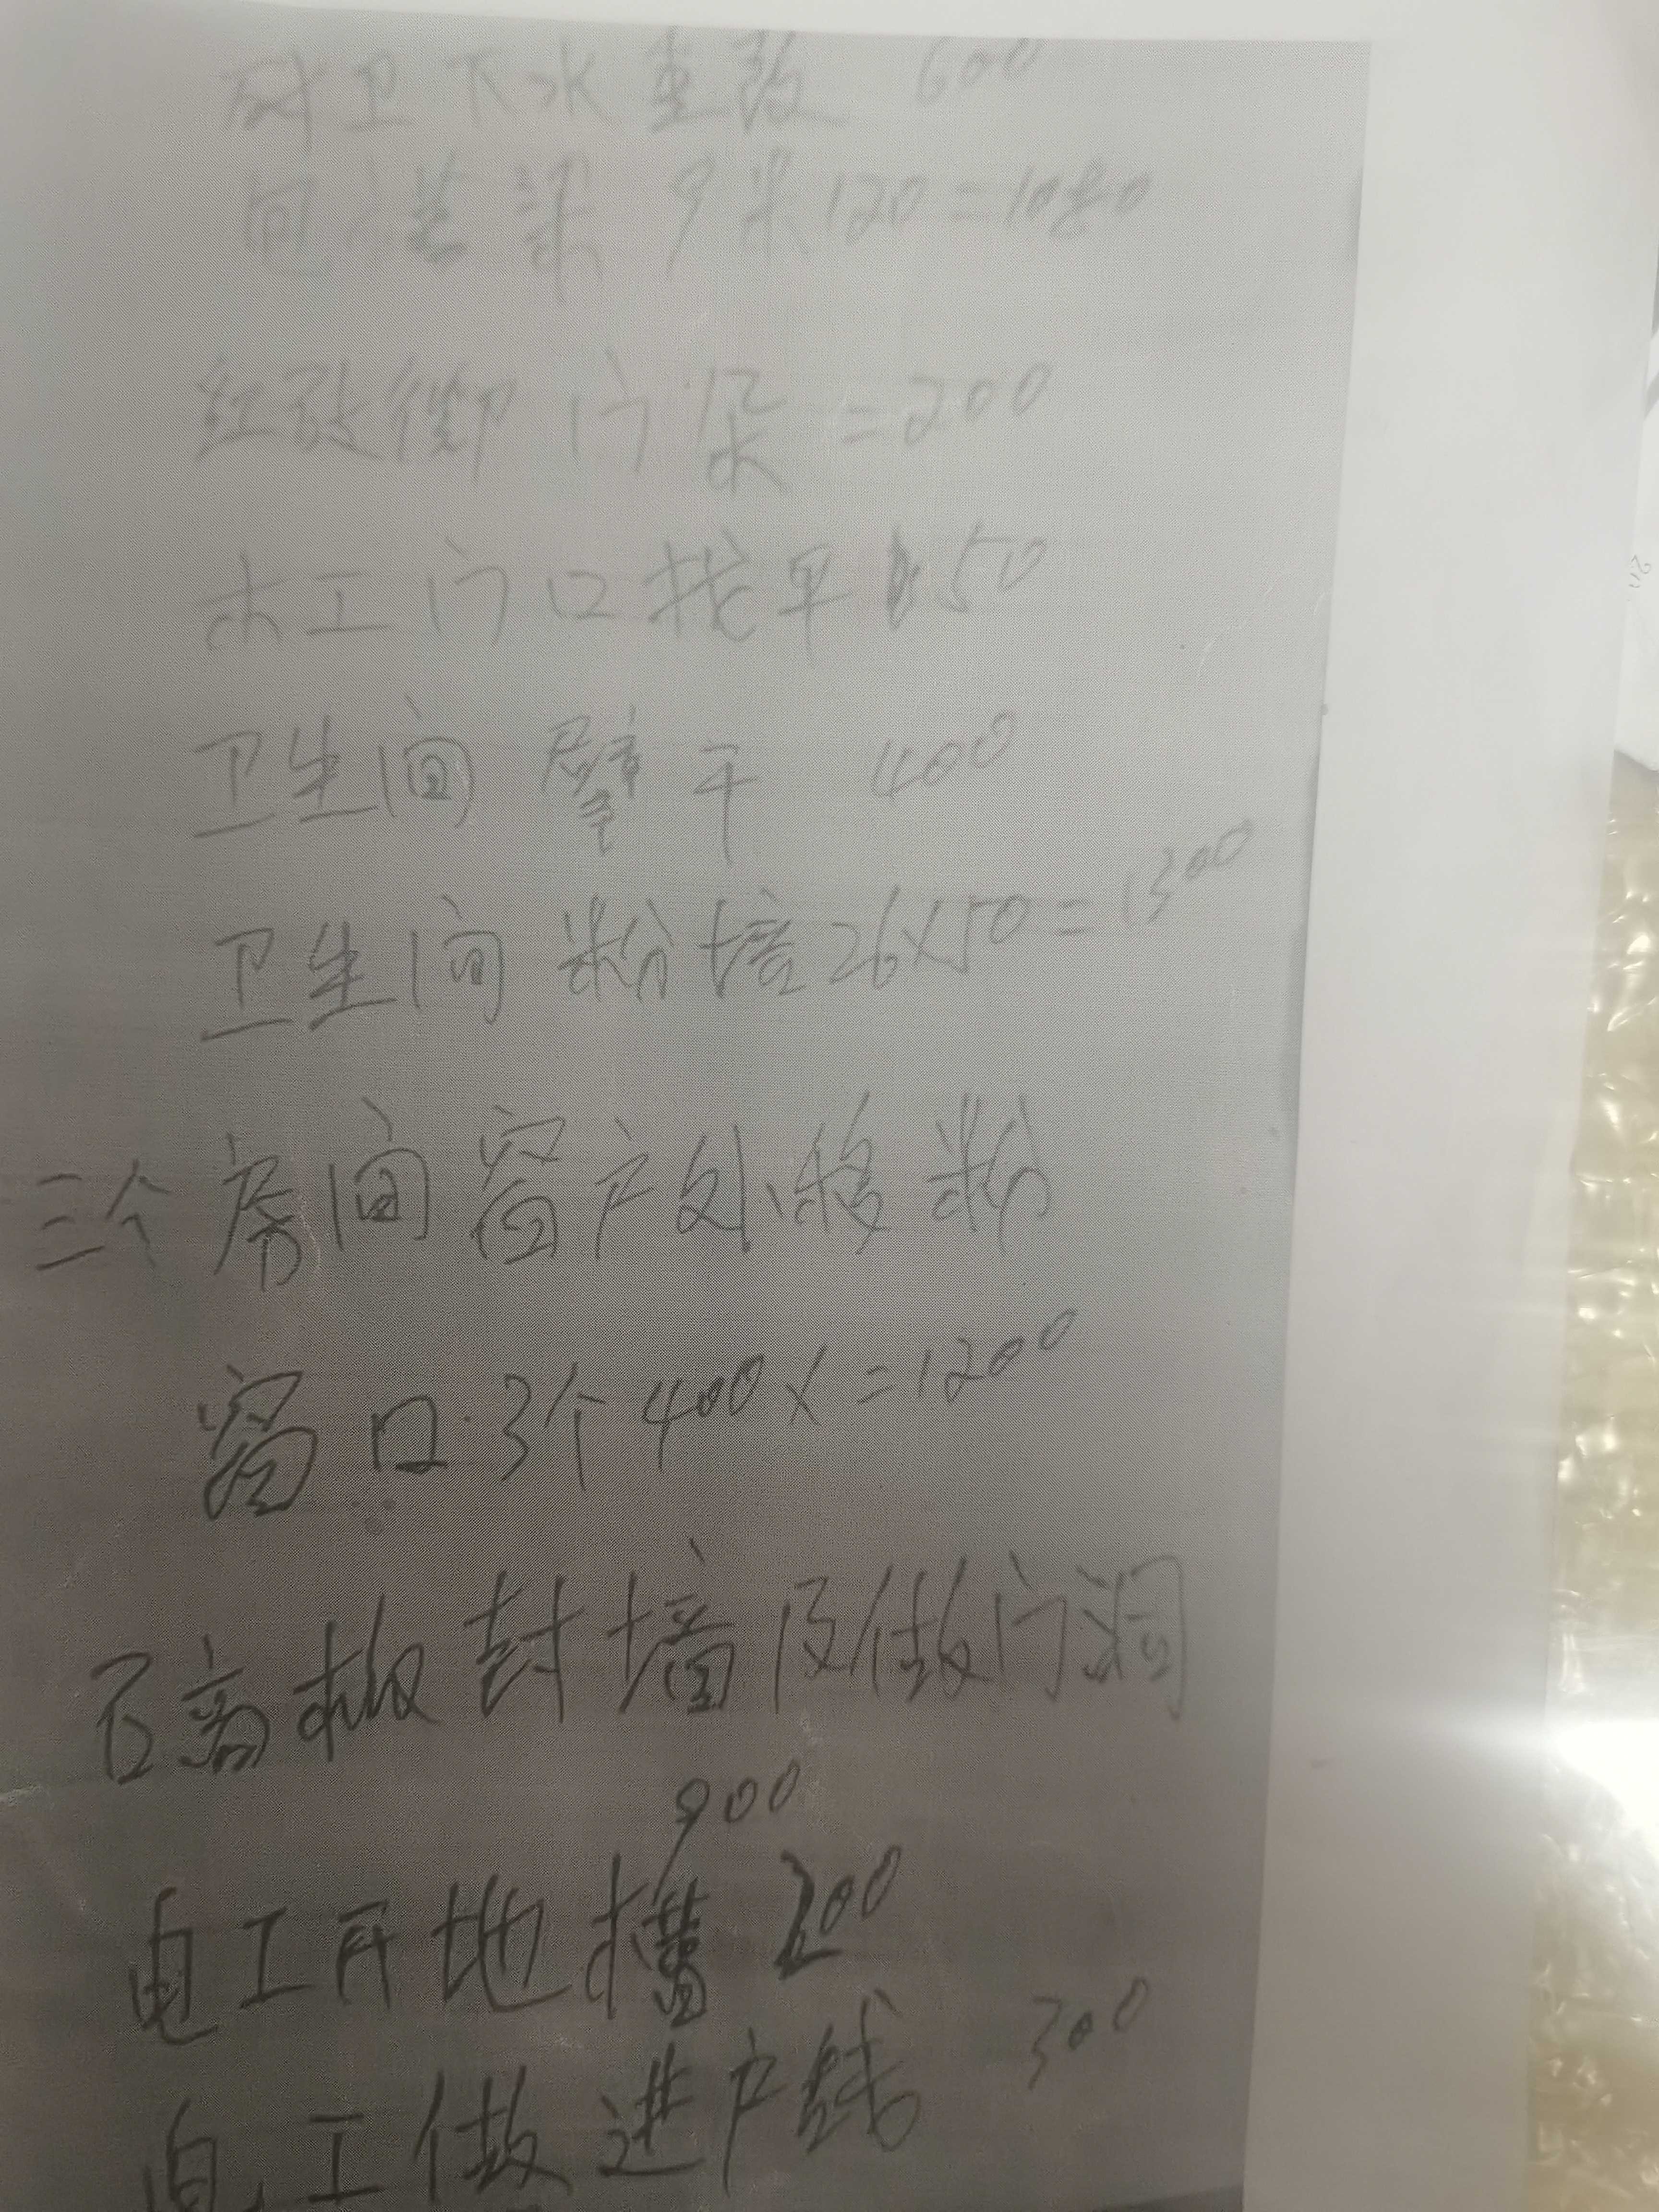 厨卫下水重改 600
包 梁 9米120=1080
门 =200
木工门口找平 50
卫生间 擘平 400
卫生间 粉墙26×50=1300
三个房间窗户外移粉
窗口 3个400×=1200
石膏板封墙及做门洞
900
电工开地槽 200
电工做进户线 300